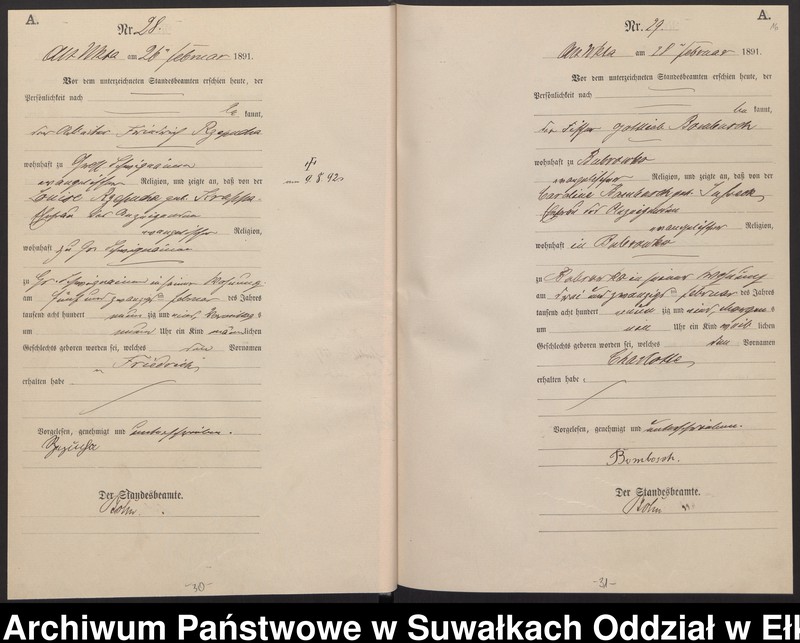 A.
Nr. 28.
Alt Ukta am 26ten Februar 1891.
Vor dem unterzeichneten Standesbeamten erschien heute, der
Persönlichkeit nach
be kannt,
der Arbeiter Friedrich
wohnhaft zu Groß
evangelischer Religion, und zeigte an, daß von der
Louise geb.
Ehefrau des Anzeigenden
evangelischer Religion,
wohnhaft zu Gr.
zu Gr. in seiner Wohnung
am fünf und zwanzigsten Februar des Jahres
tausend acht hundert neun zig und eins Vormittags
um neun Uhr ein Kind männ lichen
Geschlechts geboren worden sei, welches den Vornamen
Friedrich
erhalten habe
Vorgelesen, genehmigt und unterschrieben.
Der Standesbeamte.
Bohn
-30-
A.
Nr. 29.
Alt Ukta am 28ten Februar 1891.
Vor dem unterzeichneten Standesbeamten erschien heute, der
Persönlichkeit nach
be kannt,
der Gottlieb Bombosch
wohnhaft zu Bubrowko
evangelischer Religion, und zeigte an, daß von der
Caroline Bombosch geb.
Ehefrau des Anzeigenden
evangelischer Religion,
wohnhaft in Bubrowko
zu Bobrowko in seiner Wohnung
am drei und zwanzigsten Februar des Jahres
tausend acht hundert neun zig und eins Morgens
um Uhr ein Kind weib lichen
Geschlechts geboren worden sei, welches den Vornamen
Charlotte
erhalten habe
Vorgelesen, genehmigt und unterschrieben.
Bombosch.
Der Standesbeamte.
Bohn
-31-
Archiwum Państwowe w Suwałkach Oddział w Eł